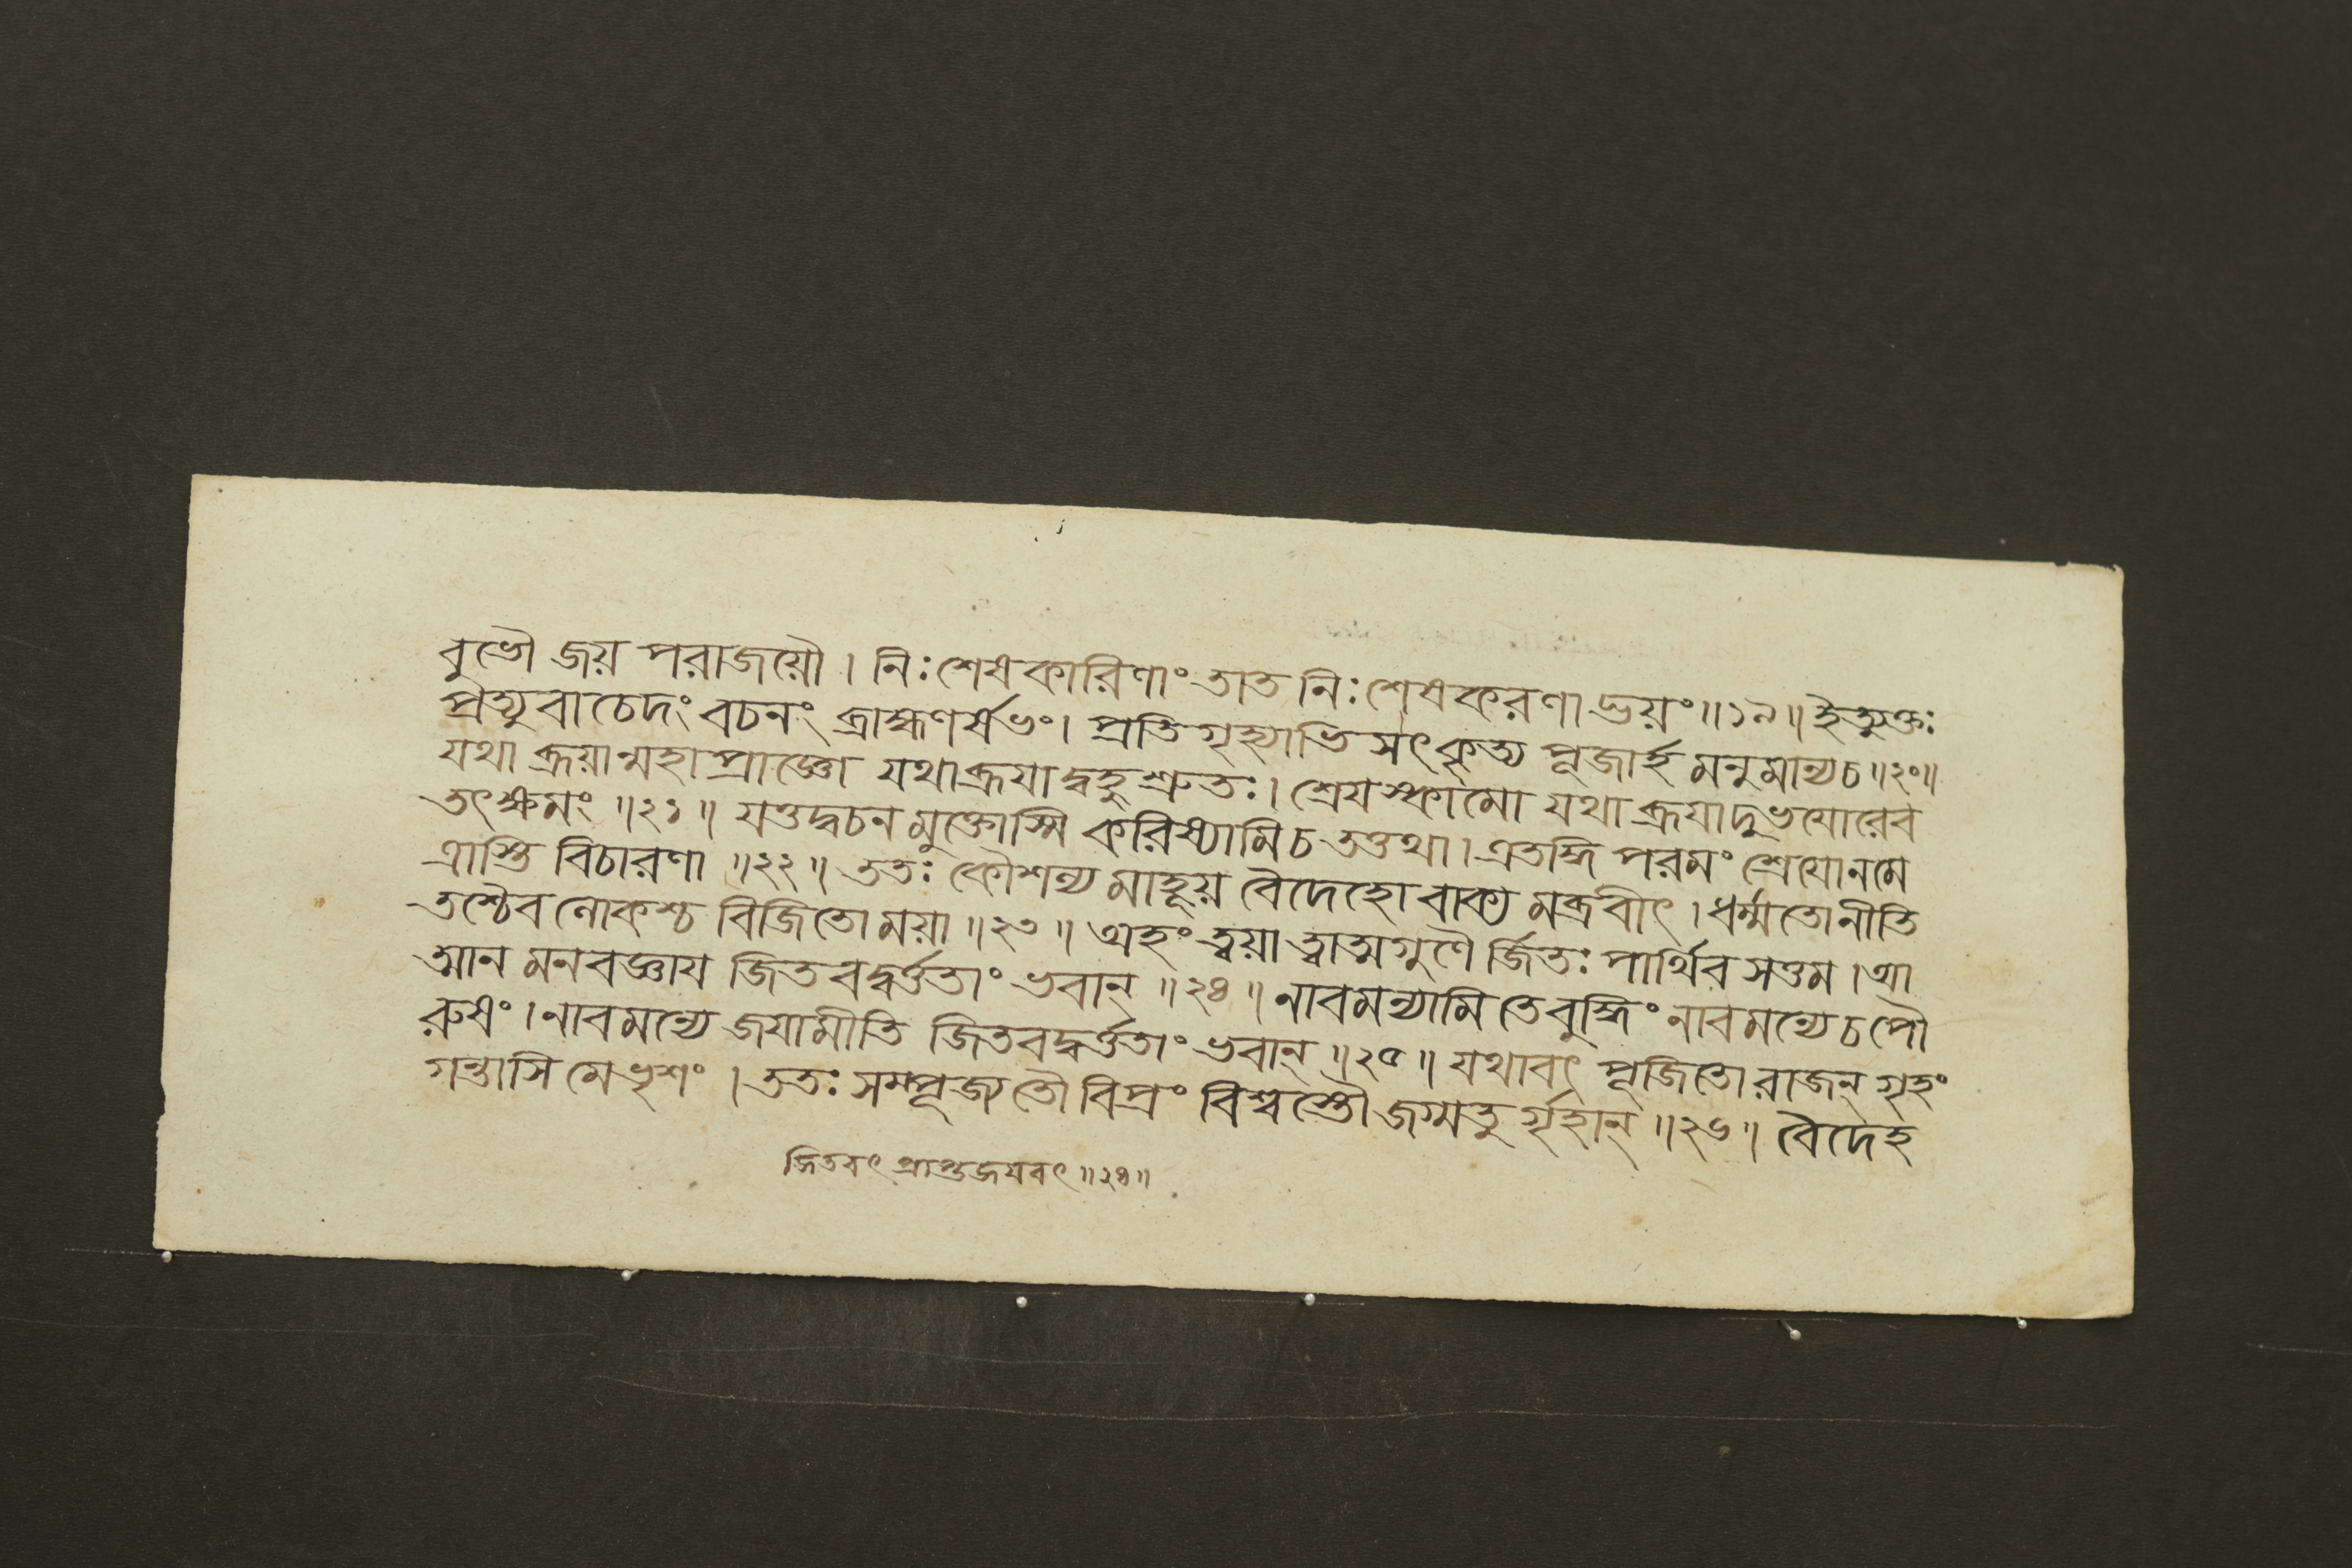 বুভৌ জয় পরাজয়ৌ । নিঃশেষকারিণাং তাত নিঃশেষকরণাদ্ভয়ং ॥১৯॥ ইত্যুক্তঃ
প্রত্যুবাচেদং বচনং ব্রাহ্মণর্ষভং । প্রতিগৃহ্যাভি সৎকৃত্য পূজার্হ মনুমান্যচ ॥২০॥
যথা ব্রূয়ান্মহাপ্রাজ্ঞো যথাব্রূযাদ্বহুশ্রুতঃ । শ্রেযস্কামো যথা ব্রূযাদুভযোরেব
তৎক্ষমং ॥২১॥ যত্তদ্বচন মুক্তোস্মি করিষ্যামিচ তত্তথা । এতদ্ধি পরমং শ্রেযোনমে
ত্রাস্তি বিচারণা ॥২২॥ ততঃ কৌশল্য মাহূয় বৈদেহো বাক্য মব্রবীৎ । ধর্ম্মতোনীতি
তশ্চৈব লোকশ্চ বিজিতো ময়া ॥২৩॥ অহং ত্বয়া ত্বাত্মগুণৈ র্জিতঃ পার্থিব সত্তম । আ
ত্মান মনবজ্ঞায জিতবদ্বর্ত্ততাং ভবান্ ॥২৪॥ নাবমন্যামি তে বুদ্ধিং নাবমন্যে চ পৌ
রুষং । নাবমন্যে জযামীতি জিতবদ্বর্ত্ততাং ভবান্ ॥২৫॥ যথাবৎ পূজিতো রাজন্ গৃহং
গন্তাসি মে ভৃশং । ততঃ সম্পূজ্য তৌ বিপ্রং বিশ্বস্তৌ জগ্মতু র্গৃহান্ ॥২৬॥ বৈদেহ
জিতবৎ প্রাপ্তজযবৎ ॥২৪॥